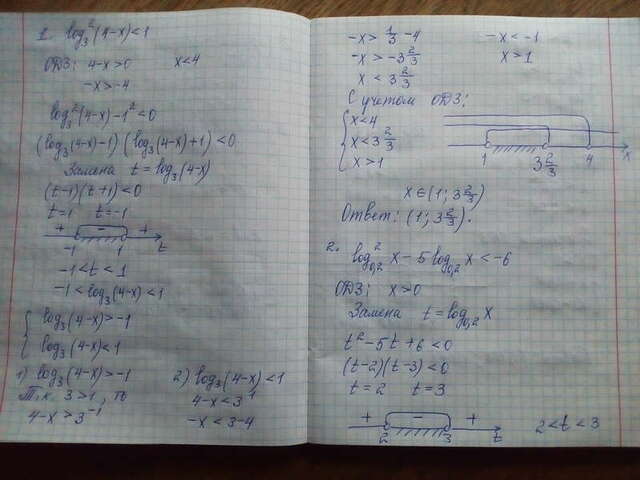 1. log₃²(4-x)<1
ОДЗ: 4-x>0 x<4
-x>-4
log₃²(4-x)-1²<0
(log₃(4-x)-1)(log₃(4-x)+1)<0
Замена t=log₃(4-x)
(t-1)(t+1)<0
t=1 t=-1
+ - +
-1 1 t
-1<t<1
-1<log₃(4-x)<1
{ log₃(4-x)>-1
log₃(4-x)<1
1) log₃(4-x)>-1
Т.к. 3>1, то
4-x>3⁻¹
2) log₃(4-x)<1
4-x<3¹
-x<3-4
-x>1/3-4 -x<-1
-x>-3 2/3 x>1
x<3 2/3
С учетом ОДЗ:
{ x<4
x<3 2/3
x>1
1 3 2/3 4 x
x∈(1; 3 2/3)
Ответ: (1; 3 2/3).
2. log²₀,₂ x - 5log₀,₂ x < -6
ОДЗ: x>0
Замена t=log₀,₂ x
t²-5t+6<0
(t-2)(t-3)<0
t=2 t=3
+ - +
2 3 t 2<t<3